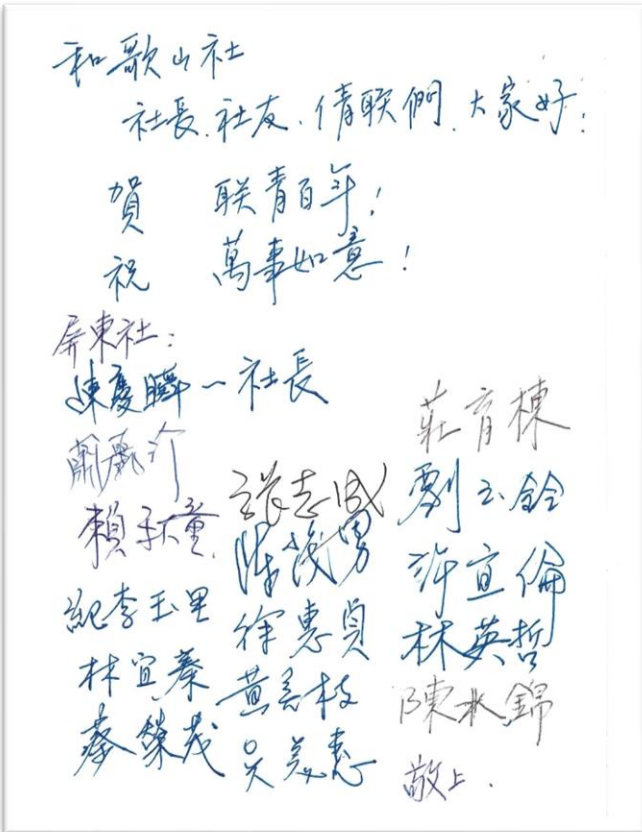 和歌山社
社長、社友、倩联們、大家好!
賀 联青百年!
祝 萬事如意!
屏東社:
陳慶瞬-社長
賴秋童
紀李玉里
林宜蓁
蔡榮茂
張志成
陳茂男
徐惠貞
黃美枝
吳美惠
莊育棟
劉玉銓
許宣倫
林英哲
陳水錦
敬上.